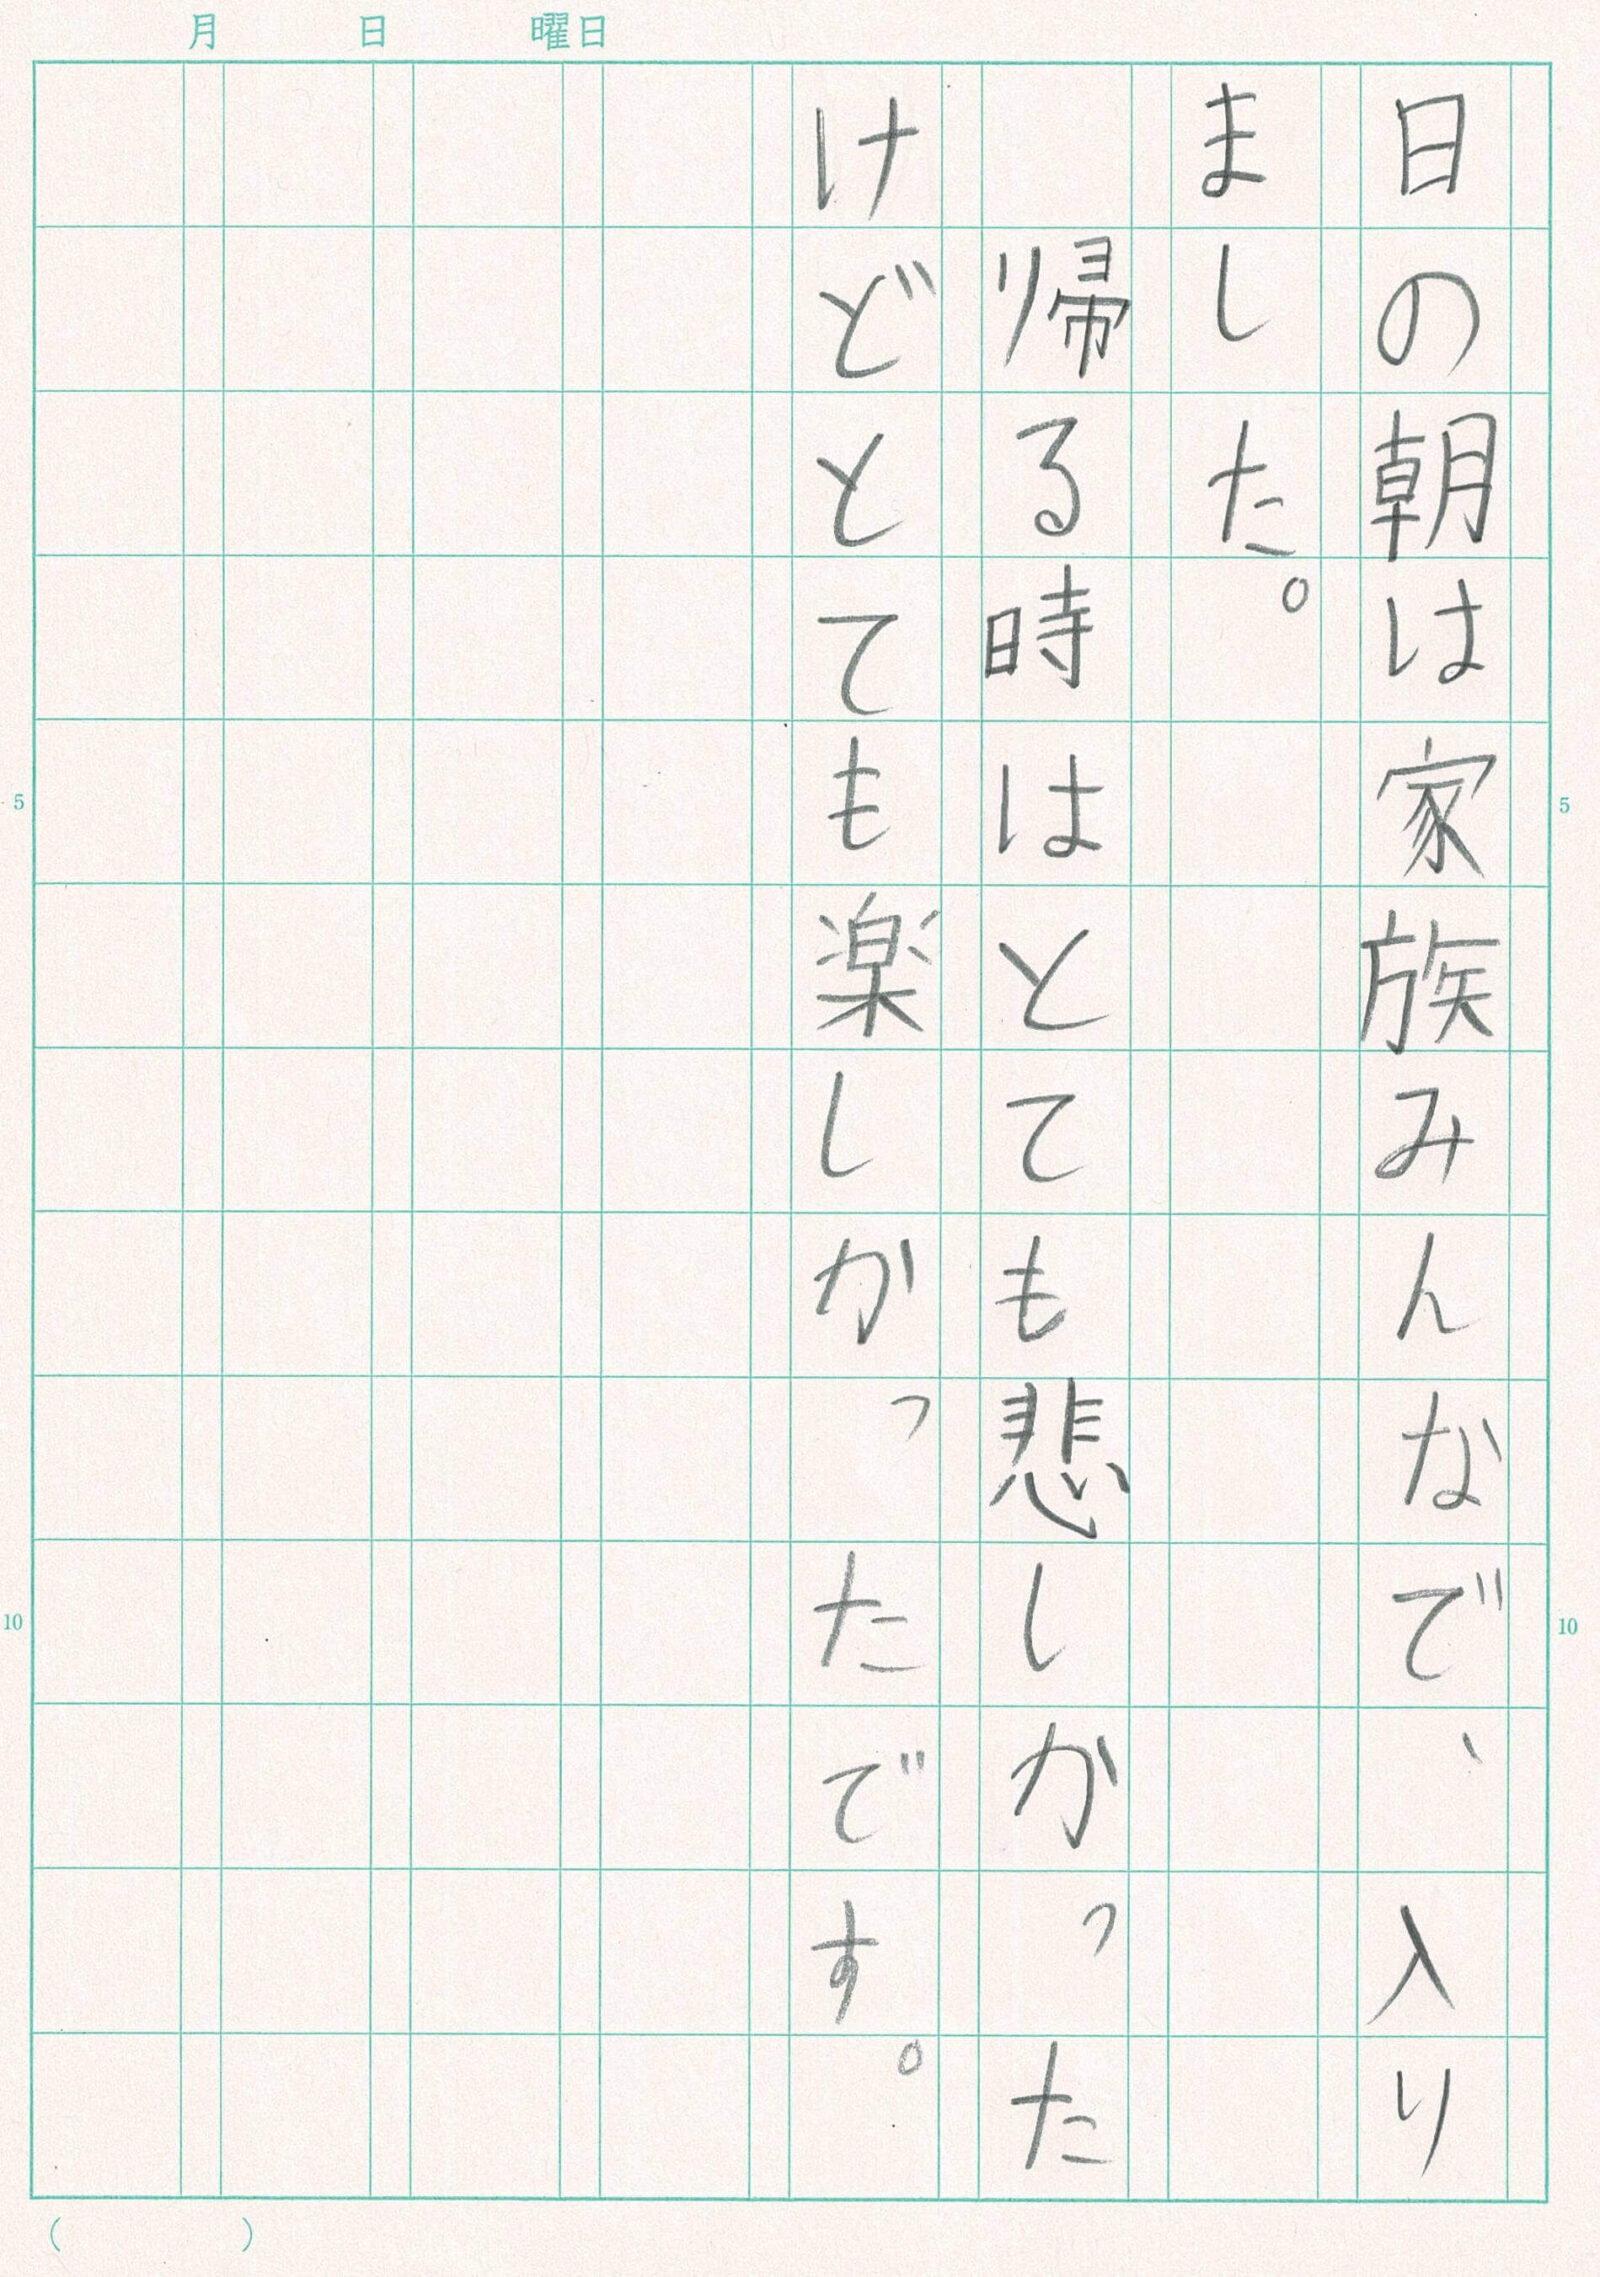 月 日 曜日
日の朝は家族みんなで、入り
ました。
帰る時はとても悲しかった
けどとても楽しかったです。
5
10
5
10
( )